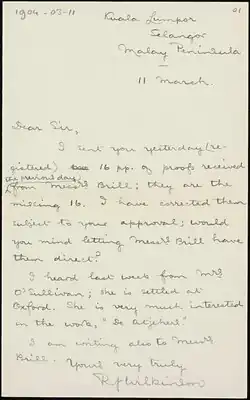 1904-03-11
01
Kuala Lumpor
Selangor
Malay Peninsula
11 March.
Dear Sir,
I sent you yesterday (re-
gistered) 16 pp. of proofs received
the previous day
from Messrs Brill; they are the
missing 16. I have corrected them
subject to your approval; would
you mind letting Messrs Brill have
them direct?
I heard last week from Mrs
O'Sullivan; she is settled at
Oxford. She is very much interested
in the work, "De Atjehers."
I am writing also to Messrs
Brill. Yours very truly
R J Wilkinson